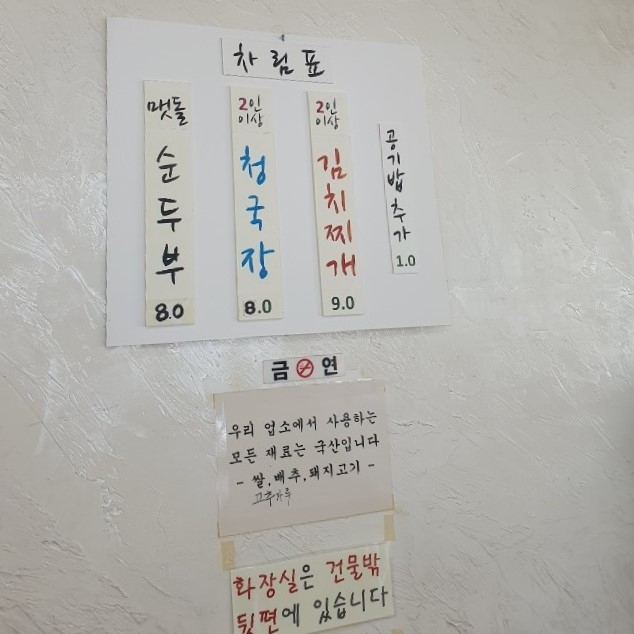 차림표
맷돌
순두부
8.0
2인
이상
청국장
8.0
2인
이상
김치찌개
9.0
공기밥추가
1.0
금연
우리 업소에서 사용하는
모든 재료는 국산입니다
- 쌀, 배추, 돼지고기 -
고추가루
화장실은 건물밖
뒷편에 있습니다